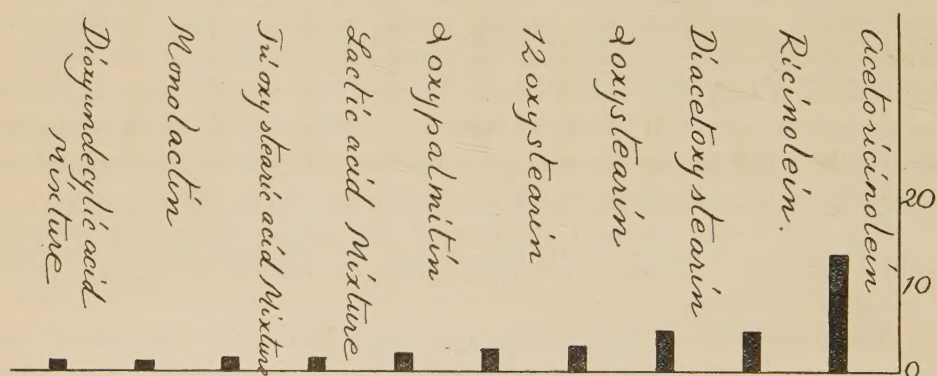 Acetoricinolein
Ricinolein.
Diacetoxystearin
α oxystearin
12 oxystearin
α oxypalmitin
Lactic acid Mixture
Trioxystearic acid Mixture
Monolactin
Dioxyundecylic acid
Mixture
20
10
0